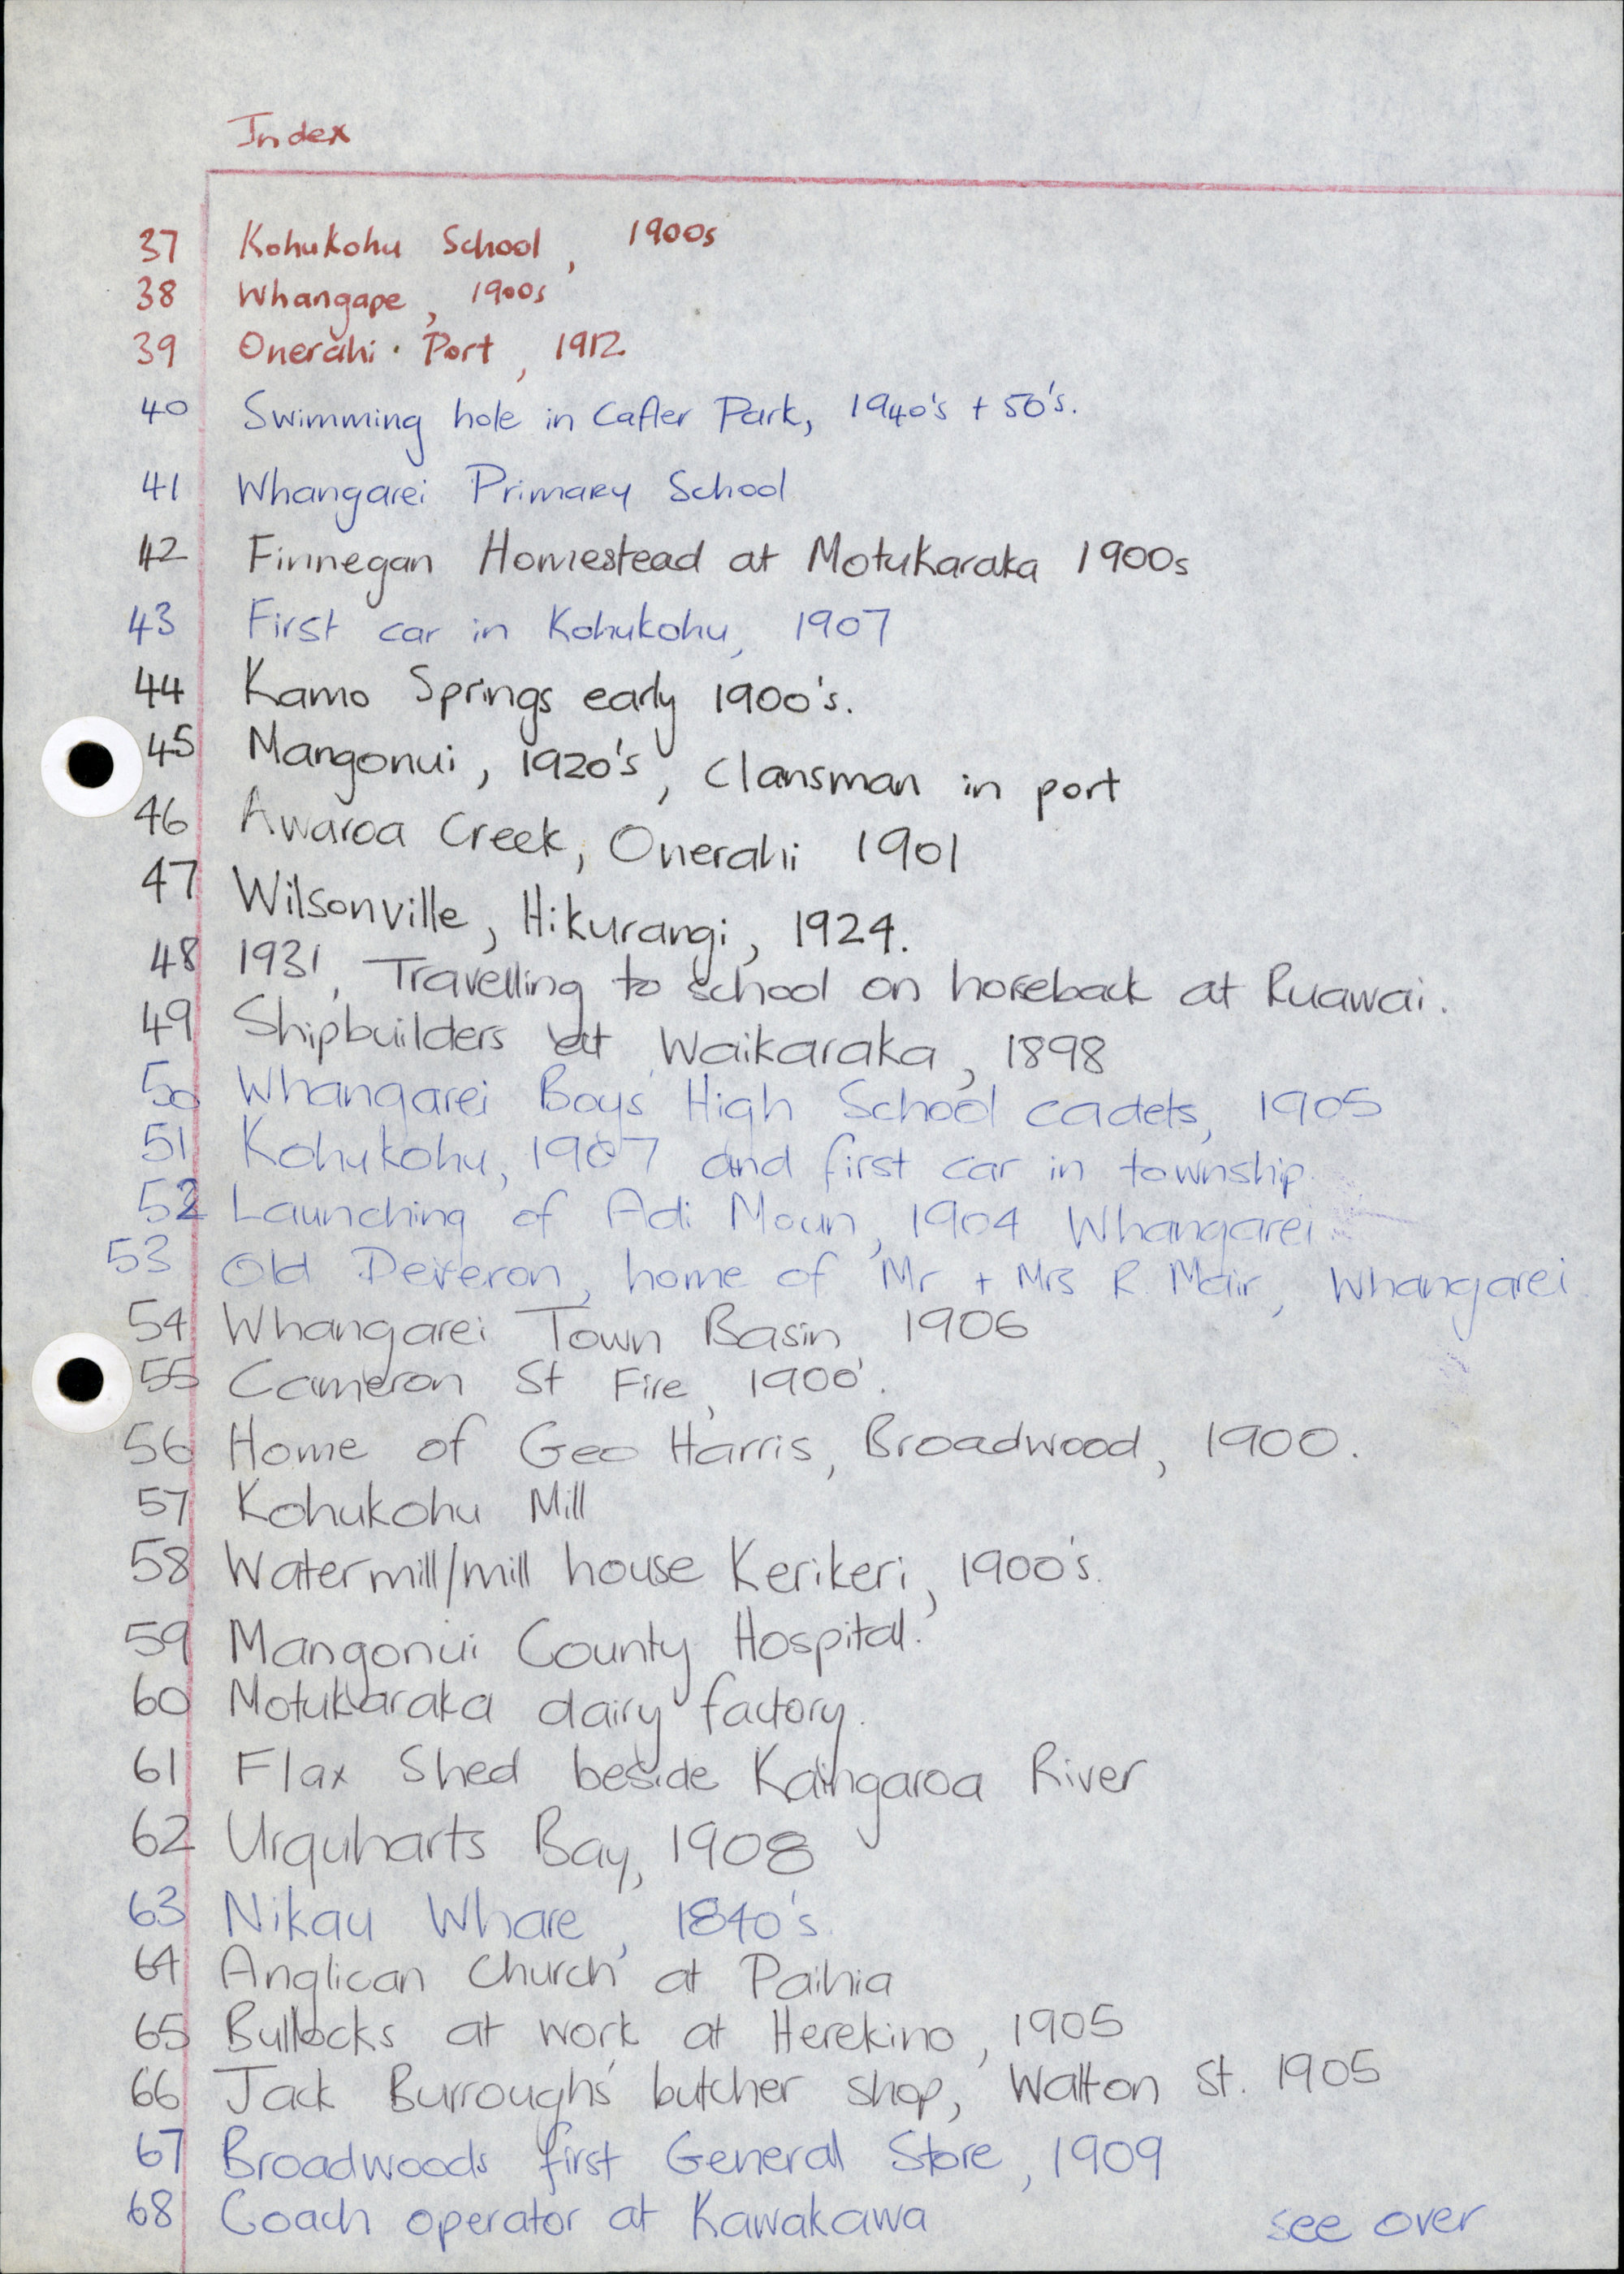 Index
37 Kohukohu School, 1900s
38 Whangape, 1900s
39 Onerahi Port, 1912
40 Swimming hole in Cafler Park, 1940's + 50's.
41 Whangarei Primary School
42 Finnegan Homestead at Motukaraka 1900s
43 First car in Kohukohu, 1907
44 Kamo Springs early 1900's.
45 Mangonui, 1920's, Clansman in port
46 Awaroa Creek, Onerahi 1901
47 Wilsonville, Hikurangi, 1924.
48 1931, Travelling to school on horseback at Ruawai.
49 Shipbuilders at Waikaraka, 1898
50 Whangarei Boys' High School cadets, 1905
51 Kohukohu, 1907 and first car in township.
52 Launching of Adi Moun, 1904 Whangarei
53 Old Deveron, home of Mr + Mrs R. Mair, Whangarei
54 Whangarei Town Basin 1906
55 Cameron St Fire, 1900'.
56 Home of Geo Harris, Broadwood, 1900.
57 Kohukohu Mill
58 Watermill/mill house Kerikeri, 1900's.
59 Mangonui County Hospital.
60 Motukaraka dairy factory.
61 Flax Shed beside Kaingaroa River
62 Urquharts Bay, 1908
63 Nikau Whare, 1840's.
64 Anglican Church at Paihia
65 Bullocks at work at Herekino, 1905
66 Jack Burroughs' butcher shop, Walton St. 1905
67 Broadwoods first General Store, 1909
68 Coach operator at Kawakawa
see over